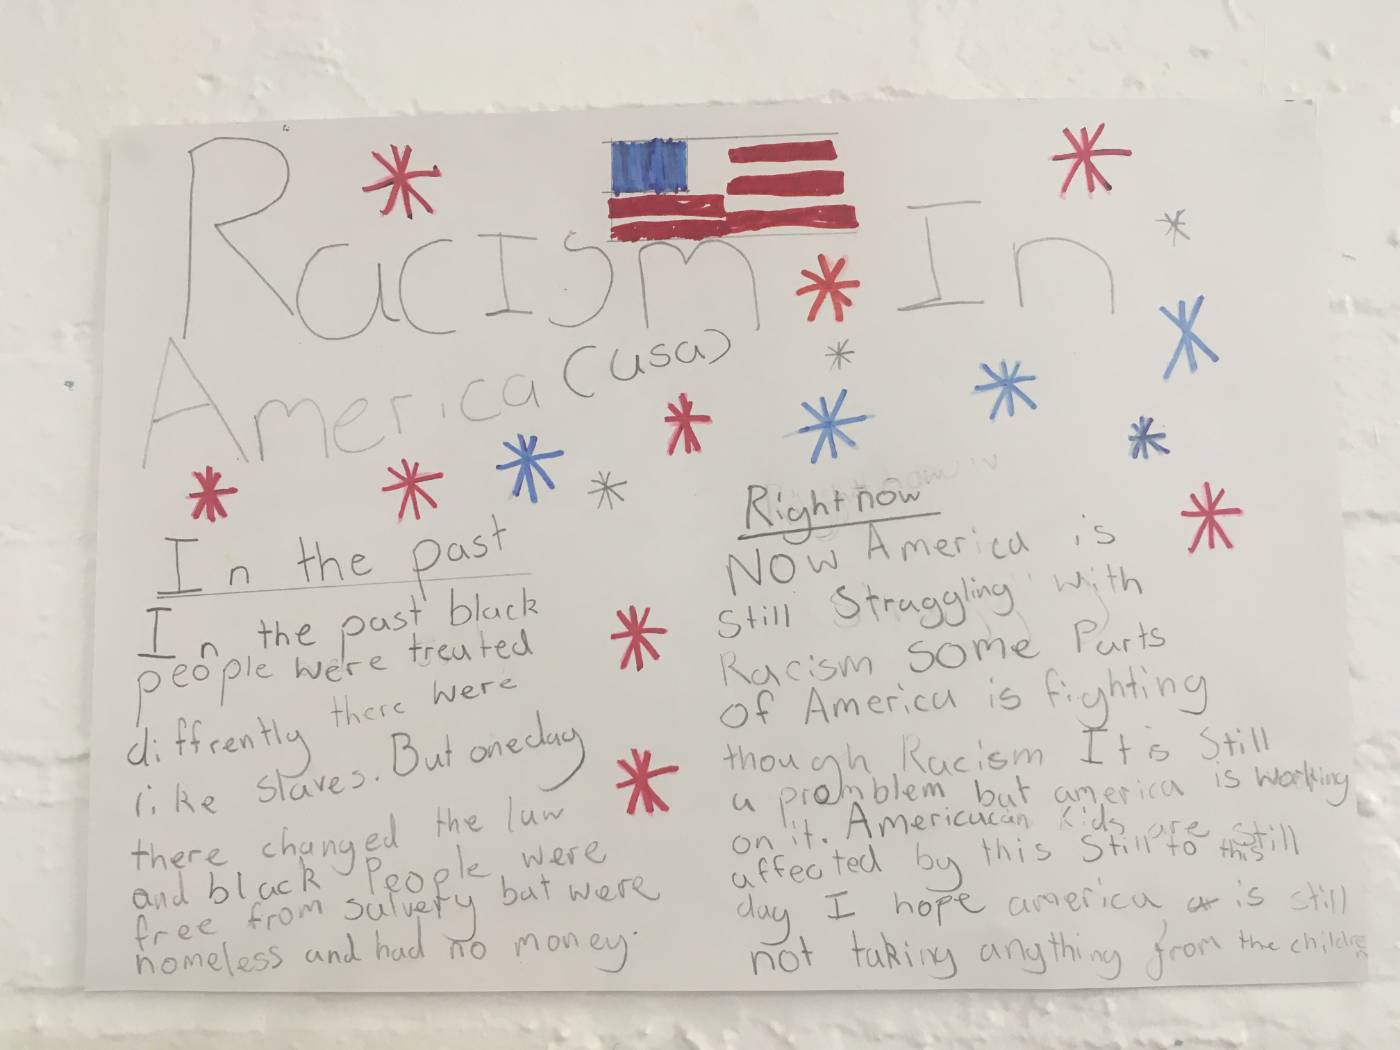 Racism In
America (usa)
In the past
In the past black
people were treated
diffrently there were
like slaves. But oneday
there changed the law
and black People were
free from salvery but were
homeless and had no money.
Right now
Now America is
Still Straggling with
Racism some Parts
of America is fighting
though Racism It is Still
a promblem but america is working
on it. Americacan Kids are Still
affected by this Still to this
day I hope america is still
not taking anything from the children